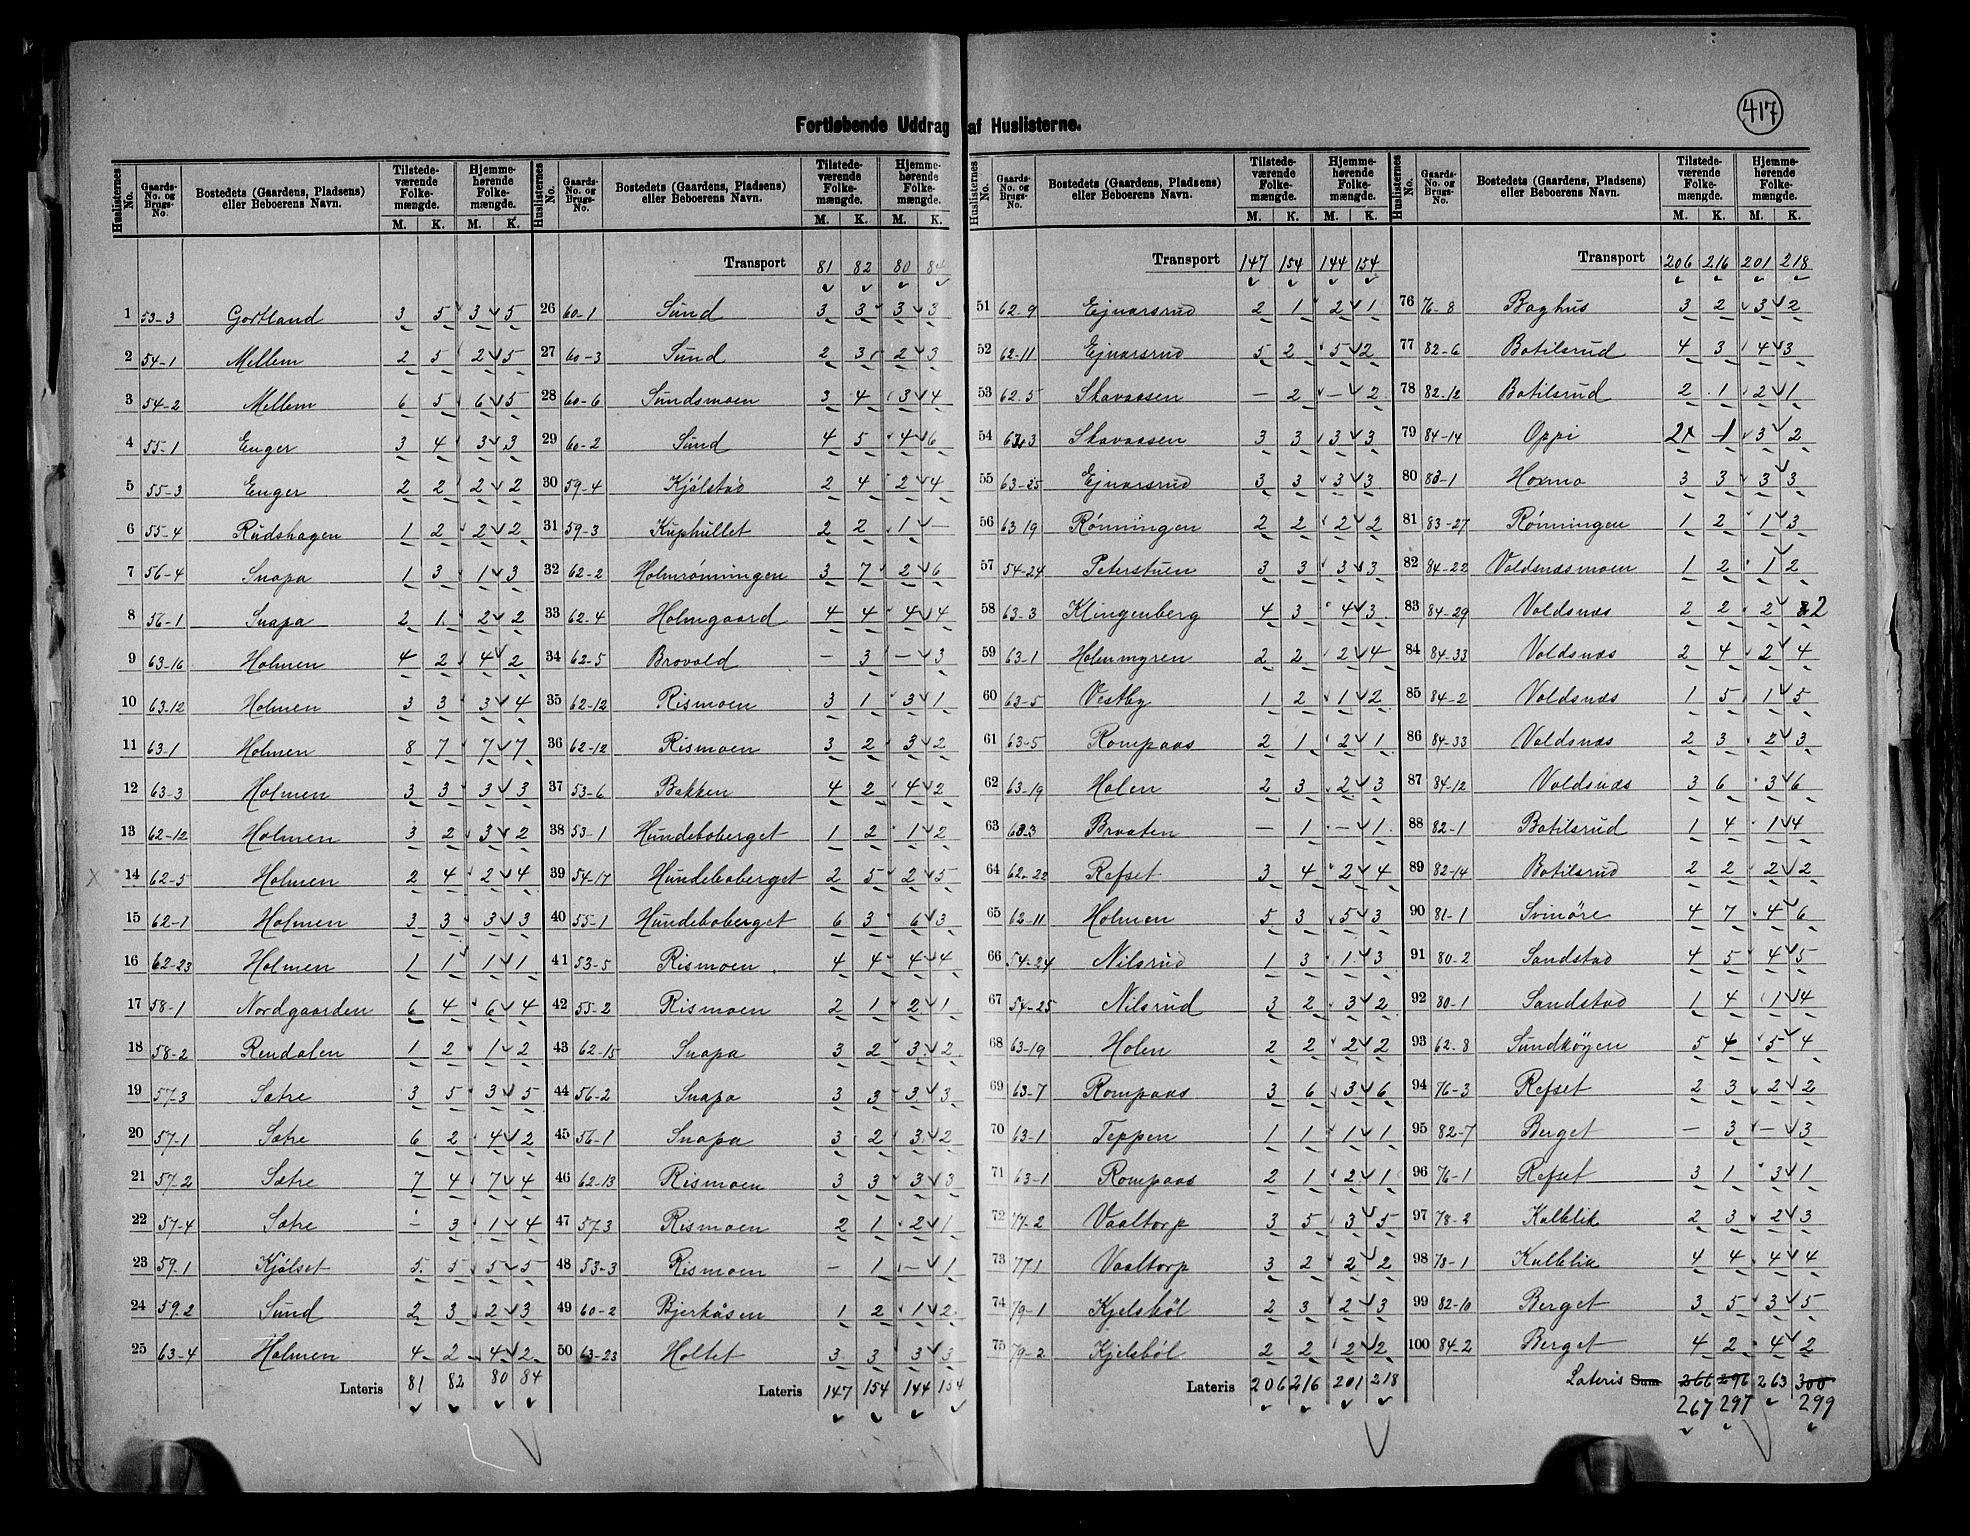 417
Fortløbende Uddrag af Huslisterne.
Huslisternes No. Gaards-No. og Brugs-No. Bostedets (Gaardens, Pladsens) eller Beboerens Navn. Tilstedeværende Folkemængde. M. K. Hjemmehørende Folkemængde. M. K.
1 53-3 Gortland 3 5 3 5
2 54-1 Mellem 2 5 2 5
3 54-2 Mellem 6 5 6 5
4 55-1 Enger 3 4 3 3
5 55-3 Enger 2 2 2 2
6 55-4 Rudshagen 1 2 2 2
7 56-4 Snapa 1 3 1 3
8 56-1 Snapa 2 1 2 2
9 63-16 Holmen 4 2 4 2
10 63-12 Holmen 3 3 3 4
11 63-1 Holmen 8 7 7 7
12 63-3 Holmen 3 3 3 3
13 62-12 Holmen 3 2 3 2
14 62-5 Holmen 2 4 2 4
15 62-1 Holmen 3 3 3 3
16 62-23 Holmen 1 1 1 1
17 58-1 Nordgaarden 6 4 6 4
18 58-2 Rendalen 1 2 1 2
19 57-3 Sætre 3 5 3 5
20 57-1 Sætre 6 2 4 2
21 57-2 Sætre 7 4 7 4
22 57-4 Sætre – 3 1 4
23 59-1 Kjølset 5 5 5 5
24 59-2 Sund 2 3 2 3
25 63-4 Holmen 4 2 4 2
Lateris 81 82 80 84
Huslisternes No. Gaards-No. og Brugs-No. Bostedets (Gaardens, Pladsens) eller Beboerens Navn. Tilstedeværende Folkemængde. M. K. Hjemmehørende Folkemængde. M. K.
Transport 81 82 80 84
26 60-1 Sund 3 3 3 3
27 60-3 Sund 2 3 2 3
28 60-6 Sundsmoen 3 4 3 4
29 60-2 Sund 4 5 4 6
30 59-4 Kjølstad 2 4 2 4
31 59-3 Kuphullet 2 2 1 –
32 62-2 Holmrønningen 3 7 2 6
33 62-4 Holmgaard 4 4 4 4
34 62-5 Brovold – 3 – 3
35 62-12 Rismoen 3 1 3 1
36 62-12 Rismoen 3 2 3 2
37 53-6 Bakken 4 2 4 2
38 53-1 Hundeboberget 1 2 1 2
39 54-17 Hundeboberget 2 5 2 5
40 55-1 Hundeboberget 6 3 6 3
41 53-5 Rismoen 4 4 4 4
42 55-2 Rismoen 2 1 2 1
43 62-15 Snapa 3 2 3 2
44 56-2 Snapa 3 3 3 3
45 56-1 Snapa 3 2 3 2
46 62-13 Rismoen 3 3 3 3
47 57-3 Rismoen 2 1 2 1
48 53-3 Rismoen – 1 – 1
49 60-2 Bjerkåsen 1 2 1 2
50 63-23 Holtet 3 3 3 3
Lateris 147 154 144 154
Huslisternes No. Gaards-No. og Brugs-No. Bostedets (Gaardens, Pladsens) eller Beboerens Navn. Tilstedeværende Folkemængde. M. K. Hjemmehørende Folkemængde. M. K.
Transport 147 154 144 154
51 62-9 Ejnarsrud 2 1 2 1
52 62-11 Ejnarsrud 5 2 5 2
53 62-5 Skavaasen – 2 – 2
54 Skavaasen 3 3 3 3
55 63-25 Ejnarsrud 3 3 3 3
56 63-19 Rønningen 2 2 2 2
57 54-24 Peterstuen 3 3 3 3
58 63-3 Klingenberg 4 3 4 3
59 63-1 Holmmyren 2 2 2 4
60 63-5 Vestby 1 2 1 2
61 63-5 Rompaas 2 1 2 1
62 63-19 Holen 2 3 2 3
63 Braaten – 1 – 1
64 62-22 Refset 3 4 2 4
65 62-11 Holmen 5 3 5 3
66 54-24 Nilsrud 1 3 1 3
67 54-25 Nilsrud 3 2 3 2
68 63-19 Holen 2 2 2 2
69 63-7 Rompaas 3 6 3 6
70 63-1 Teppen 1 1 1 1
71 63-1 Rompaas 2 1 2 1
72 77-2 Vaaltorp 3 5 3 5
73 77-1 Vaaltorp 3 2 2 2
74 79-1 Kjelsbøl 2 3 2 3
75 79-2 Kjelsbøl 2 2 2 2
Lateris 206 216 201 218
Huslisternes No. Gaards-No. og Brugs-No. Bostedets (Gaardens, Pladsens) eller Beboerens Navn. Tilstedeværende Folkemængde. M. K. Hjemmehørende Folkemængde. M. K.
Transport 206 216 201 218
76 76-8 Baghus 3 2 3 2
77 82-6 Botilsrud 4 3 4 3
78 82-12 Botilsrud 2 1 2 1
79 84-14 Oppi 2 1 3 2
80 83-1 Hoxmo 3 3 3 3
81 83-27 Rønningen 1 2 1 3
82 84-22 Voldsnæsmoen 1 2 1 2
83 84-29 Voldsnæs 2 2 2 2
84 84-33 Voldsnæs 2 4 2 4
85 84-2 Voldsnæs 1 5 1 5
86 84-33 Voldsnæs 2 3 2 3
87 84-12 Voldsnæs 3 6 3 6
88 82-1 Botilsrud 1 4 1 4
89 82-14 Botilsrud 2 2 2 2
90 81-1 Svinøre 4 7 4 6
91 80-2 Sandstad 4 5 4 5
92 80-1 Sandstad 1 4 1 4
93 62-8 Sundkøyen 5 4 5 4
94 76-3 Refset 2 3 2 2
95 82-7 Berget – 3 – 3
96 76-1 Refset 3 1 3 1
97 78-2 Kalblik 2 3 2 3
98 78-1 Kalblik 4 4 4 4
99 82-10 Berget 3 5 3 5
100 84-2 Berget 4 2 4 2
Lateris Sum 266 296 263 300
267 297 299